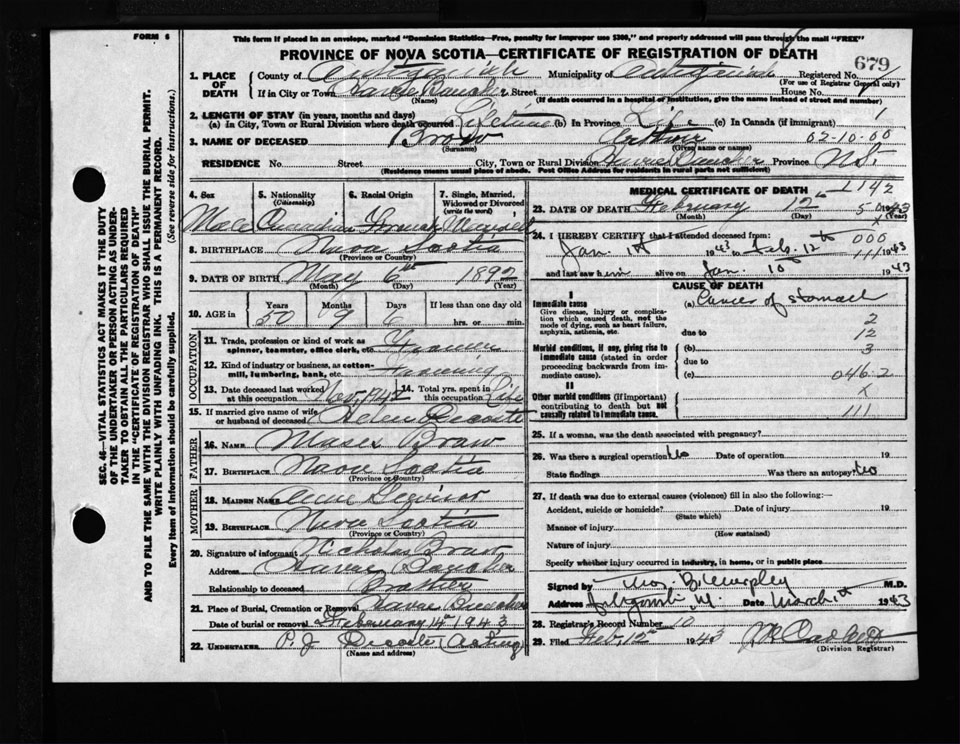 FORM 6
This form if placed in an envelope, marked "Dominion Statistics—Free, penalty for improper use $300," and properly addressed will pass through the mail "FREE"
PROVINCE OF NOVA SCOTIA—CERTIFICATE OF REGISTRATION OF DEATH
679
1. PLACE OF DEATH
County of Antigonish Municipality of Antigonish Registered No.
(For use of Registrar General only)
If in City or Town Havre Boucher Street House No.
(Name) (If death occurred in a hospital of institution, give the name instead of street and number)
2. LENGTH OF STAY (in years, months and days)
(a) In City, Town or Rural Division where death occurred Lifetime (b) In Province Life (c) In Canada (if immigrant)
3. NAME OF DECEASED Brow 02-10-00
(Surname) (Given name or names)
RESIDENCE No. Street City, Town or Rural Division Havre Boucher Province N.S.
(Residence means usual place of abode. Post Office Address for residents in rural parts not sufficient)
4. Sex
Male
5. Nationality
(Citizenship)
Canadian
6. Racial Origin
French
7. Single, Married, Widowed or Divorced
(write the word)
Married
8. BIRTHPLACE Nova Scotia
(Province or Country)
9. DATE OF BIRTH May 6th 1892
(Month) (Day) (Year)
10. AGE in
Years Months Days If less than one day old
50 9 6 hrs. or min.
OCCUPATION
11. Trade, profession or kind of work as spinner, teamster, office clerk, etc. Farmer
12. Kind of industry or business, as cotton-mill, lumbering, bank, etc. Farming
13. Date deceased last worked at this occupation Nov. 1942
14. Total yrs. spent in this occupation Life
15. If married give name of wife or husband of deceased Helen Decoste
FATHER
16. NAME Moses Brow
17. BIRTHPLACE Nova Scotia
(Province or Country)
MOTHER
18. MAIDEN NAME
19. BIRTHPLACE Nova Scotia
(Province or Country)
20. Signature of informant Nicholas Brow
Address Havre Boucher
Relationship to deceased Brother
21. Place of Burial, Cremation or Removal Havre Boucher
Date of burial or removal February 14 1943
22. UNDERTAKER P. J. Decoste (Acting)
(Name and address)
MEDICAL CERTIFICATE OF DEATH
1142
23. DATE OF DEATH February 12th 1943
(Month) (Day) (Year)
24. I HEREBY CERTIFY that I attended deceased from:
Jan 1st 1943 to Feb. 12th 1943
000
111
and last saw him alive on Jan. 10th 1943
CAUSE OF DEATH
I
Immediate cause
Give disease, injury or complication which caused death, not the mode of dying, such as heart failure, asphyxia, asthenia, etc.
(a) Cancer of stomach
2
due to 12
Morbid conditions, if any, giving rise to immediate cause (stated in order proceeding backwards from immediate cause).
(b) 3
due to
(c) 046.2
II
Other morbid conditions (if important) contributing to death but not causally related to immediate cause.
X
111
25. If a woman, was the death associated with pregnancy?
26. Was there a surgical operation No Date of operation 19
State findings Was there an autopsy? No
27. If death was due to external causes (violence) fill in also the following:—
Accident, suicide or homicide? Date of injury 19
(State which)
Manner of injury
(How sustained)
Nature of injury
Specify whether injury occurred in industry, in home, or in public place
Signed by M.D.
Address Date March 1943
28. Registrar's Record Number 10
29. Filed Feb. 12th 1943
(Division Registrar)
SEC. 46—VITAL STATISTICS ACT MAKES IT THE DUTY OF THE UNDERTAKER OR PERSON ACTING AS UNDERTAKER TO OBTAIN ALL THE PARTICULARS REQUIRED IN THE "CERTIFICATE OF REGISTRATION OF DEATH" AND TO FILE THE SAME WITH THE DIVISION REGISTRAR WHO SHALL ISSUE THE BURIAL PERMIT.
WRITE PLAINLY WITH UNFADING INK. THIS IS A PERMANENT RECORD.
Every item of information should be carefully supplied. (See reverse side for instructions.)